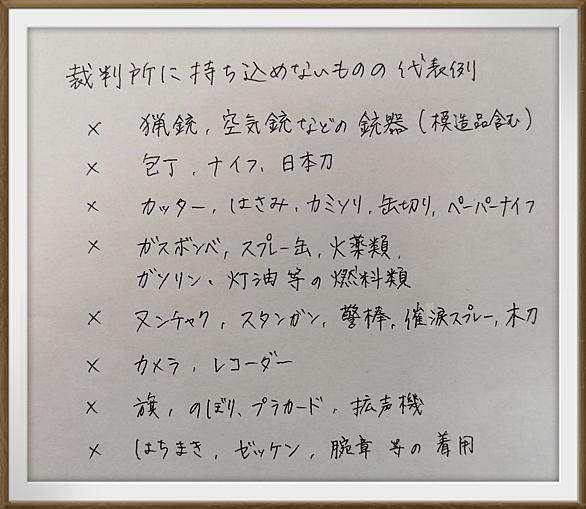 裁判所に持ち込めないものの代表例
× 猟銃、空気銃などの銃器(模造品含む)
× 包丁、ナイフ、日本刀
× カッター、はさみ、カミソリ、缶切り、ペーパーナイフ
× ガスボンベ、スプレー缶、火薬類、
ガソリン、灯油等の燃料類
× ヌンチャク、スタンガン、警棒、催涙スプレー、木刀
× カメラ、レコーダー
× 旗、のぼり、プラカード、拡声機
× はちまき、ゼッケン、腕章等の着用